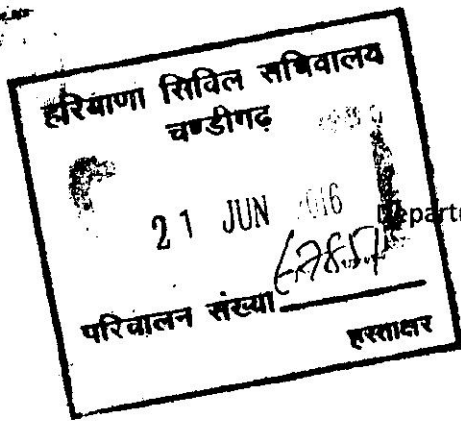 हरियाणा सिविल सचिवालय
चण्डीगढ़
21 JUN 016
Depart
परिचालन संख्या
हस्ताक्षर